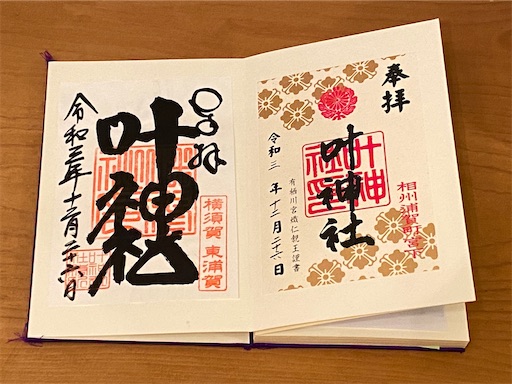 奉拝
叶神社
相州浦賀町宮下
有栖川宮熾仁親王謹書
令和三年十二月二十六日
奉拝
叶神社
横須賀 東浦賀
令和三年十二月二十六日